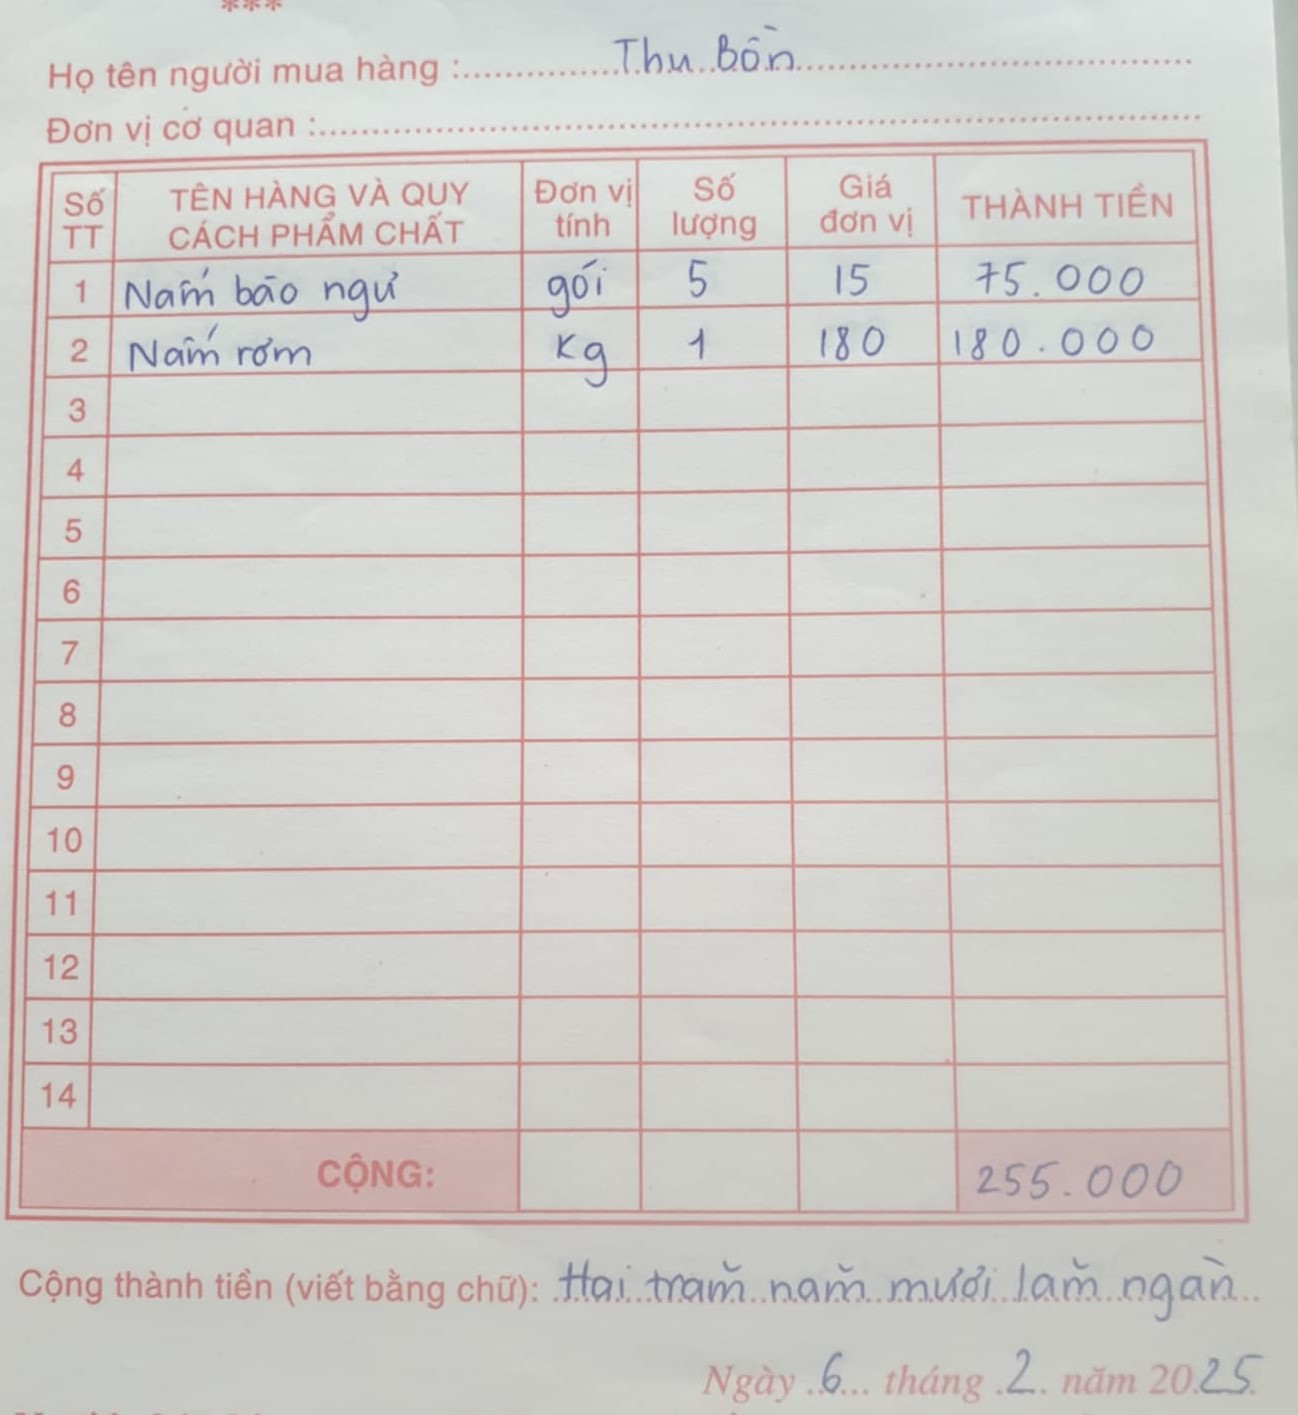 ***
Họ tên người mua hàng : Thu Bồn
Đơn vị cơ quan :
Số TT | TÊN HÀNG VÀ QUY CÁCH PHẨM CHẤT | Đơn vị tính | Số lượng | Giá đơn vị | THÀNH TIỀN
1 | Nấm bão ngư | gói | 5 | 15 | 75.000
2 | Nấm rơm | Kg | 1 | 180 | 180.000
3
4
5
6
7
8
9
10
11
12
13
14
CỘNG: 255.000
Cộng thành tiền (viết bằng chữ): Hai trăm năm mươi lăm ngàn
Ngày 6 tháng 2 năm 2025